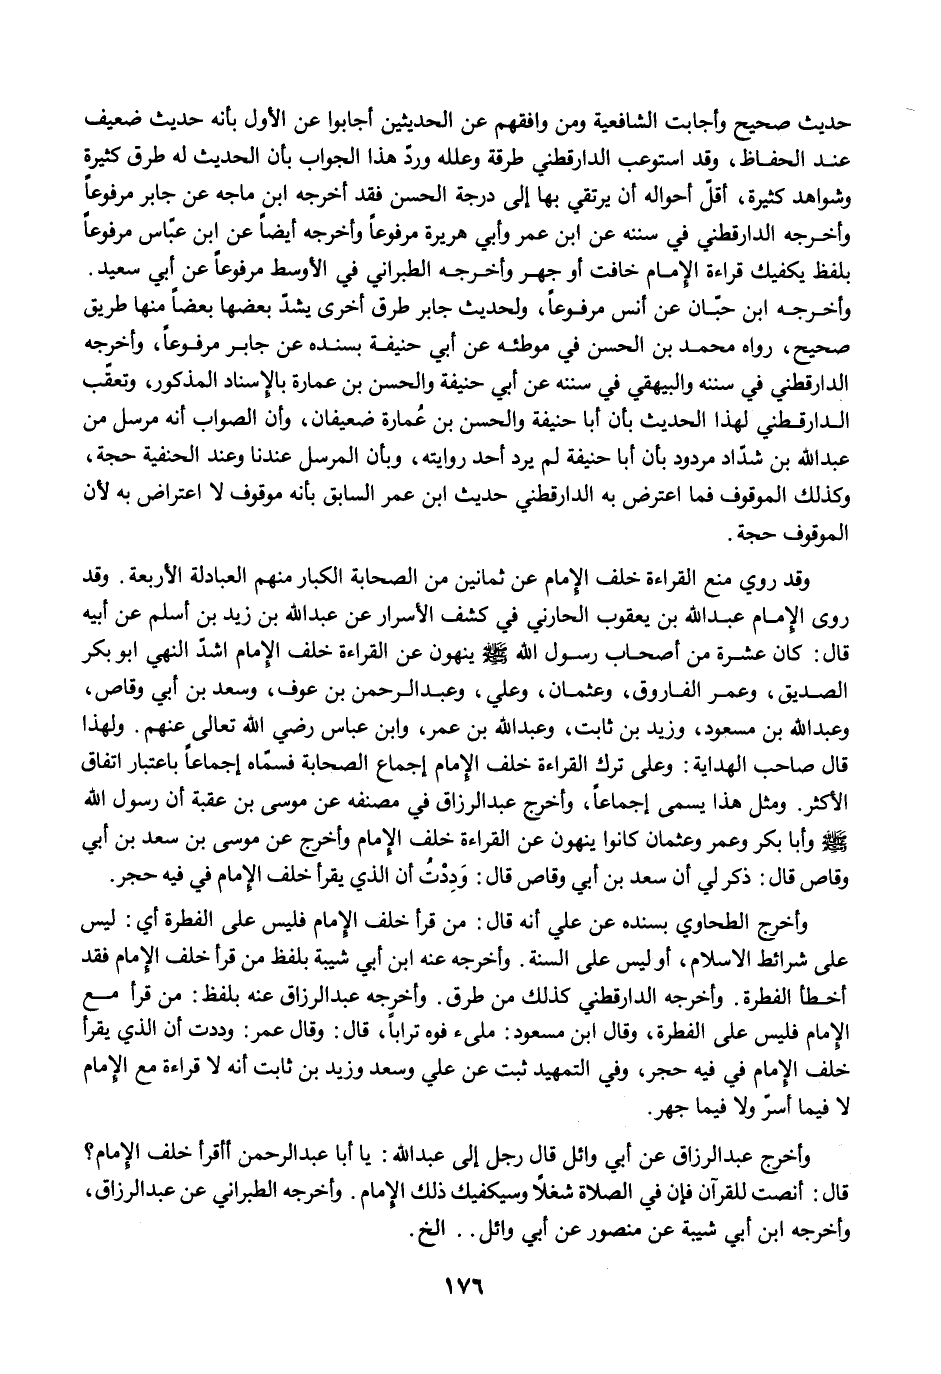 حديث صحيح وأجابت الشافعية ومن وافقهم عن الحديثين أجابوا عن الأول بأنه حديث ضعيف
عند الحفاظ، وقد استوعب الدارقطني طرقة وعلله وردّ هذا الجواب بأن الحديث له طرق كثيرة
وشواهد كثيرة، أقلّ أحواله أن يرتقي بها إلى درجة الحسن فقد أخرجه ابن ماجه عن جابر مرفوعاً
وأخرجه الدارقطني في سننه عن ابن عمر وأبي هريرة مرفوعاً وأخرجه أيضاً عن ابن عبّاس مرفوعاً
بلفظ يكفيك قراءة الإمام خافت أو جهر وأخرجه الطبراني في الأوسط مرفوعاً عن أبي سعيد.
وأخرجه ابن حبّان عن أنس مرفوعاً، ولحديث جابر طرق أخرى يشدّ بعضها بعضاً منها طريق
صحيح، رواه محمد بن الحسن في موطئه عن أبي حنيفة بسنده عن جابر مرفوعاً، وأخرجه
الدارقطني في سننه والبيهقي في سننه عن أبي حنيفة والحسن بن عمارة بالإسناد المذكور، وتعقّب
الدارقطني لهذا الحديث بأن أبا حنيفة والحسن بن عُمارة ضعيفان، وأن الصواب أنه مرسل من
عبدالله بن شدّاد مردود بأن أبا حنيفة لم يرد أحد روايته، وبأن المرسل عندنا وعند الحنفية حجة،
وكذلك الموقوف فما اعترض به الدارقطني حديث ابن عمر السابق بأنه موقوف لا اعتراض به لأن
الموقوف حجة.
وقد روي منع القراءة خلف الإمام عن ثمانين من الصحابة الكبار منهم العبادلة الأربعة. وقد
روى الإمام عبدالله بن يعقوب الحارني في كشف الأسرار عن عبدالله بن زيد بن أسلم عن أبيه
قال: كان عشرة من أصحاب رسول الله ﷺ ينهون عن القراءة خلف الإمام اشدّ النهي ابو بكر
الصديق، وعمر الفاروق، وعثمان، وعلي، وعبدالرحمن بن عوف، وسعد بن أبي وقاص،
وعبدالله بن مسعود، وزيد بن ثابت، وعبدالله بن عمر، وابن عباس رضي الله تعالى عنهم. ولهذا
قال صاحب الهداية: وعلى ترك القراءة خلف الإمام إجماع الصحابة فسمّاه إجماعاً باعتبار اتفاق
الأكثر. ومثل هذا يسمى إجماعاً، وأخرج عبدالرزاق في مصنفه عن موسى بن عقبة أن رسول الله
ﷺ وأبا بكر وعمر وعثمان كانوا ينهون عن القراءة خلف الإمام وأخرج عن موسى بن سعد بن أبي
وقاص قال: ذكر لي أن سعد بن أبي وقاص قال: وَدِدْتُ أن الذي يقرأ خلف الإمام في فيه حجر.
وأخرج الطحاوي بسنده عن علي أنه قال: من قرأ خلف الإمام فليس على الفطرة أي: ليس
على شرائط الاسلام، أو ليس على السنة. وأخرجه عنه ابن أبي شيبة بلفظ من قرأ خلف الإمام فقد
أخطأ الفطرة. وأخرجه الدارقطني كذلك من طرق. وأخرجه عبدالرزاق عنه بلفظ: من قرأ مع
الإمام فليس على الفطرة، وقال ابن مسعود: ملىء فوه تراباً، قال: وقال عمر: وددت أن الذي يقرأ
خلف الإمام في فيه حجر، وفي التمهيد ثبت عن علي وسعد وزيد بن ثابت أنه لا قراءة مع الإمام
لا فيما أسرّ ولا فيما جهر.
وأخرج عبدالرزاق عن أبي وائل قال رجل إلى عبدالله: يا أبا عبدالرحمن أأقرأ خلف الإمام؟
قال: أنصت للقرآن فإن في الصلاة شغلًا وسيكفيك ذلك الإمام. وأخرجه الطبراني عن عبدالرزاق،
وأخرجه ابن أبي شيبة عن منصور عن أبي وائل.. الخ.
١٧٦